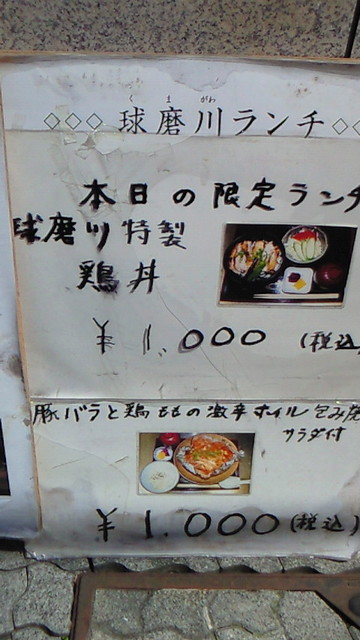 くまがわ
◇◇◇ 球磨川ランチ◇◇
本日の限定ランチ
球磨川特製
鶏丼
¥1,000 (税込
豚バラと鶏ももの激辛ホイル包み焼
サラダ付
¥1,000(税込)